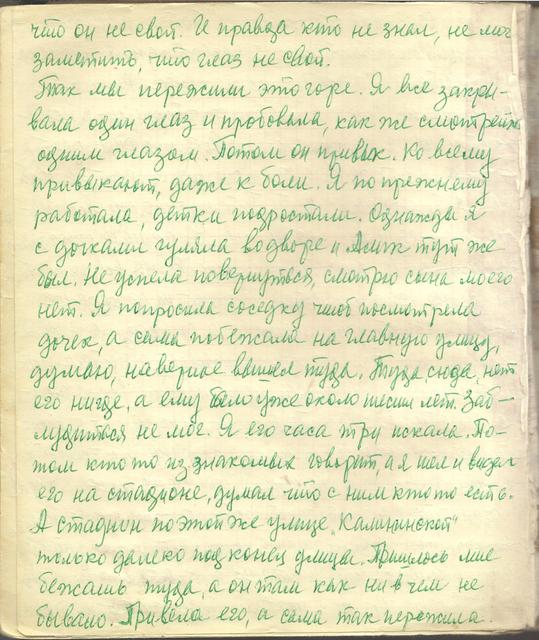 что он не свой. И правда кто не знал, не мог
заметить, что глаз не свой.
Так мы пережили это горе. Я все закры-
вала один глаз и пробовала, как же смотреть
одним глазом. Потом он привык. Ко всему
привыкают, даже к боли. Я по прежнему
работала, детки подростали. Однажды я
с дочками гуляла во дворе и Алик тут же
был. Не успела повернуться, смотрю сына моего
нет. Я попросила соседку чтоб посмотрела
дочек, а сама побежала на главную улицу,
думаю, наверное вышел туда. Туда, сюда, нет
его нигде, а ему было уже около шести лет. Заб-
лудиться не мог. Я его часа три искала. По-
том кто то из знакомых говорит, а я шел и видел
его на стадионе, думал что с ним кто то есть.
А стадион по этой же улице „Калининской"
только далеко под конец улицы. Пришлось мне
бежать туда, а он там как ни в чем не
бывало. Привела его, а сама так пережила.